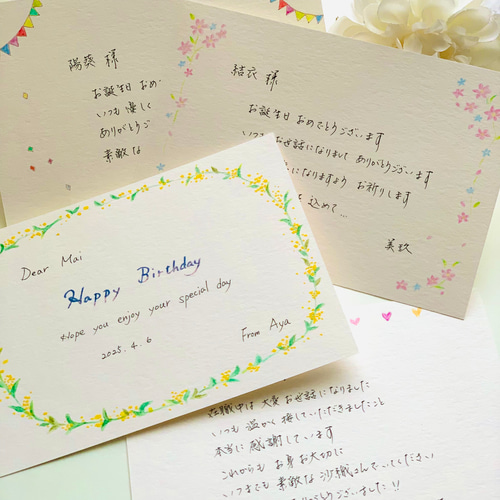 陽葵 様
お誕生日 おめ
いつも優しく
ありがとうご
素敵な
結衣 様
お誕生日 おめでとうございます
いつも お世話になりまして ありがとうございます
になりますよう お祈りします
込めて…
美玖
Dear Mai
Happy Birthday
Hope you enjoy your special day
2025. 4. 6
From Aya
在職中は 大変 お世話になりました
いつも 温かく 接していただきましたこと
本当に 感謝しています
これからも お身お大切に
いつまでも 素敵な 沙織さんでいてください
ありがとうございました!!